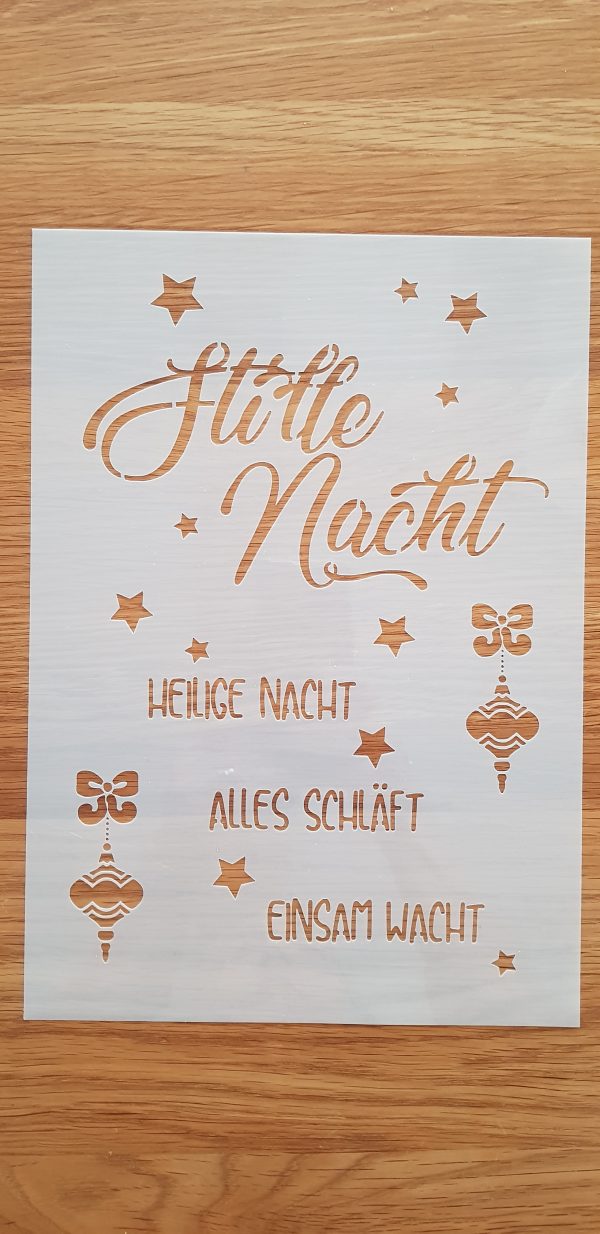 Stille
Nacht
HEILIGE NACHT
ALLES SCHLÄFT
EINSAM WACHT